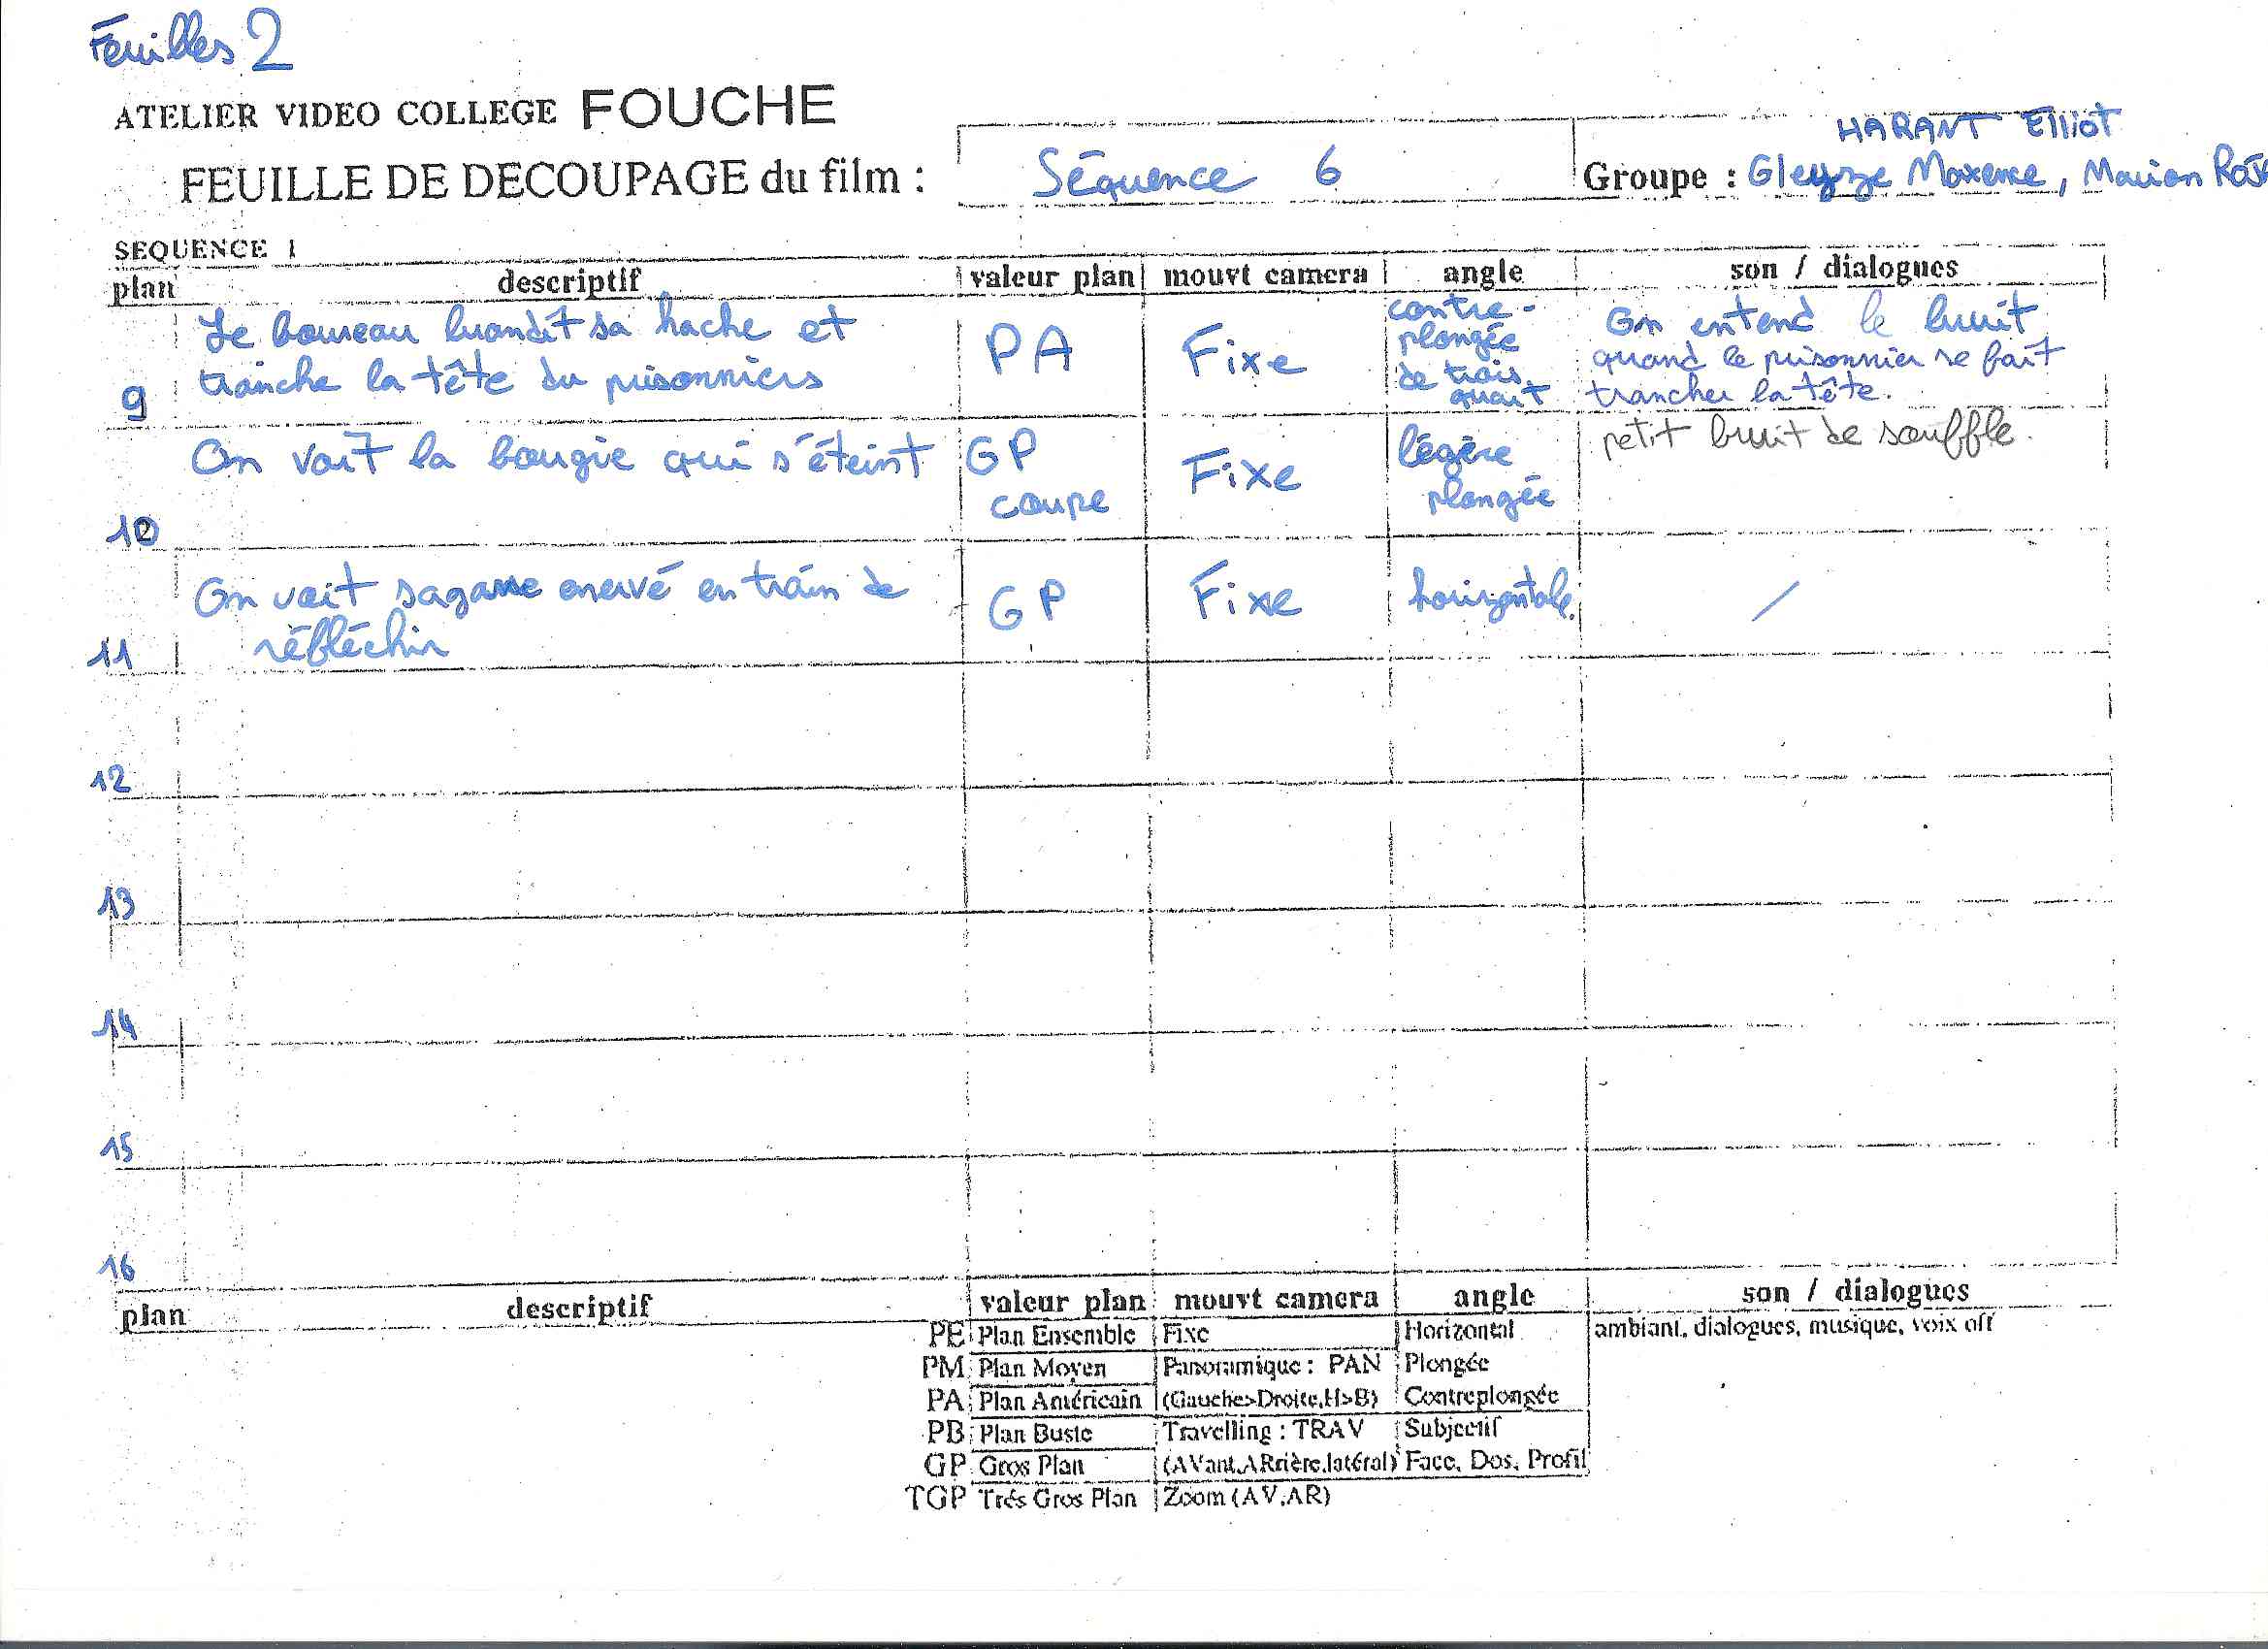 Feuilles 2
ATELIER VIDEO COLLEGE FOUCHE
HARANT Elliot
FEUILLE DE DECOUPAGE du film : Séquence 6 Groupe : Gleyze Maxence, Marion
SEQUENCE 1
plan descriptif valeur plan mouvt camera angle son / dialogues
9 Le boureau brandit sa hache et PA Fixe contre- On entend le bruit
tranche la tête du prisonniers plongée quand le prisonnier se fait
de trois trancher la tête.
quart
10 On voit la bougie qui s'éteint GP Fixe légère petit bruit de souffle.
coupe plongée
11 On voit sagamme enervé en train de GP Fixe horizontale. /
réfléchir
12
13
14
15
16
plan descriptif valeur plan mouvt camera angle son / dialogues
PE Plan Ensemble Fixe Horizontal ambiant, dialogues, musique, voix off
PM Plan Moyen Panoramique : PAN Plongée
PA Plan Américain (Gauche>Droite,H>B) Contreplongée
PB Plan Buste Travelling : TRAV Subjectif
GP Gros Plan (AVant,ARrière,latéral) Face, Dos, Profil
TGP Trés Gros Plan Zoom (AV,AR)